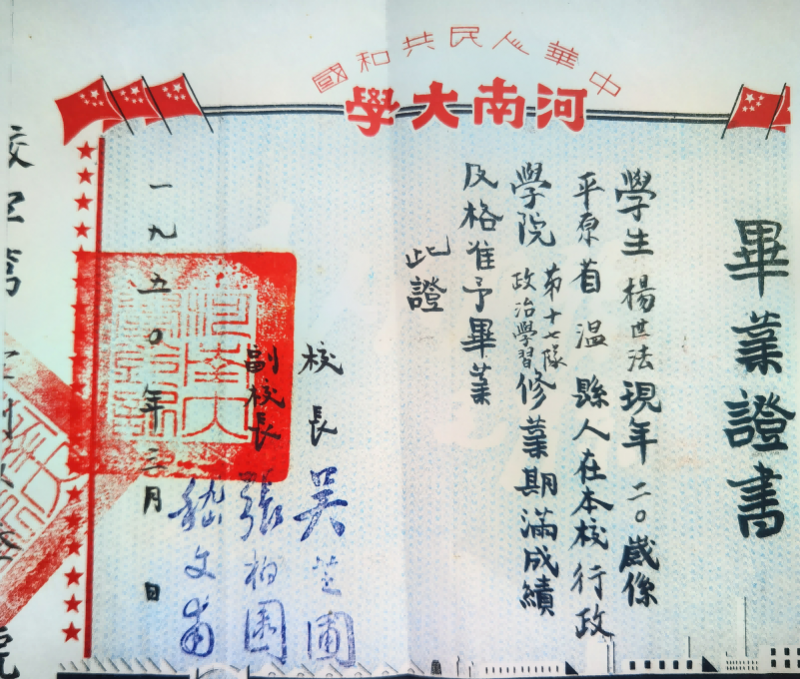 中華人民共和國
河南大學
畢業證書
學生楊世法現年二〇歲係
平原省溫縣人在本校行政
學院第十七隊政治學習修業期滿成績
及格准予畢業
此證
校長吳芝圃
副校長張柏園
嵇文甫
一九五〇年三月 日